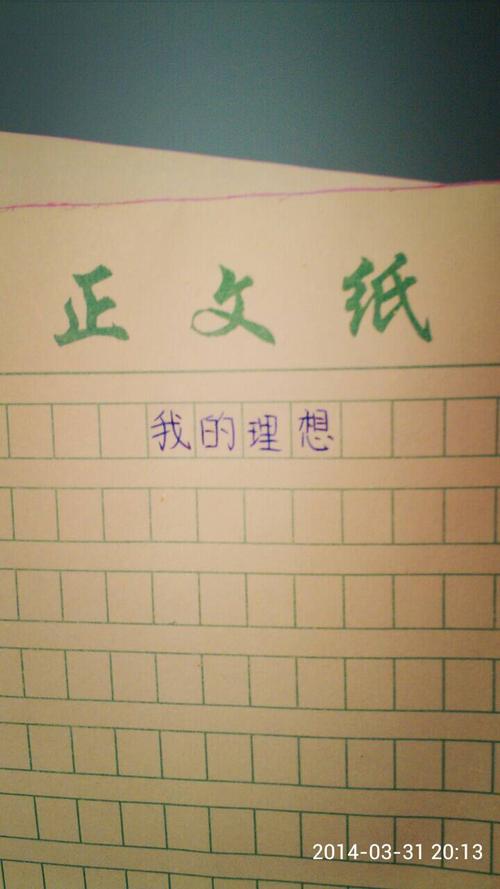 正文纸
我的理想
2014-03-31 20:13